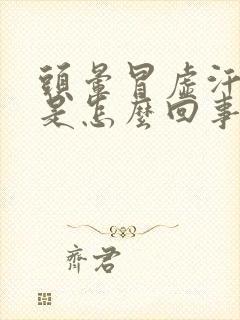 頭暈冒虛汗
是怎麼回事
齊君